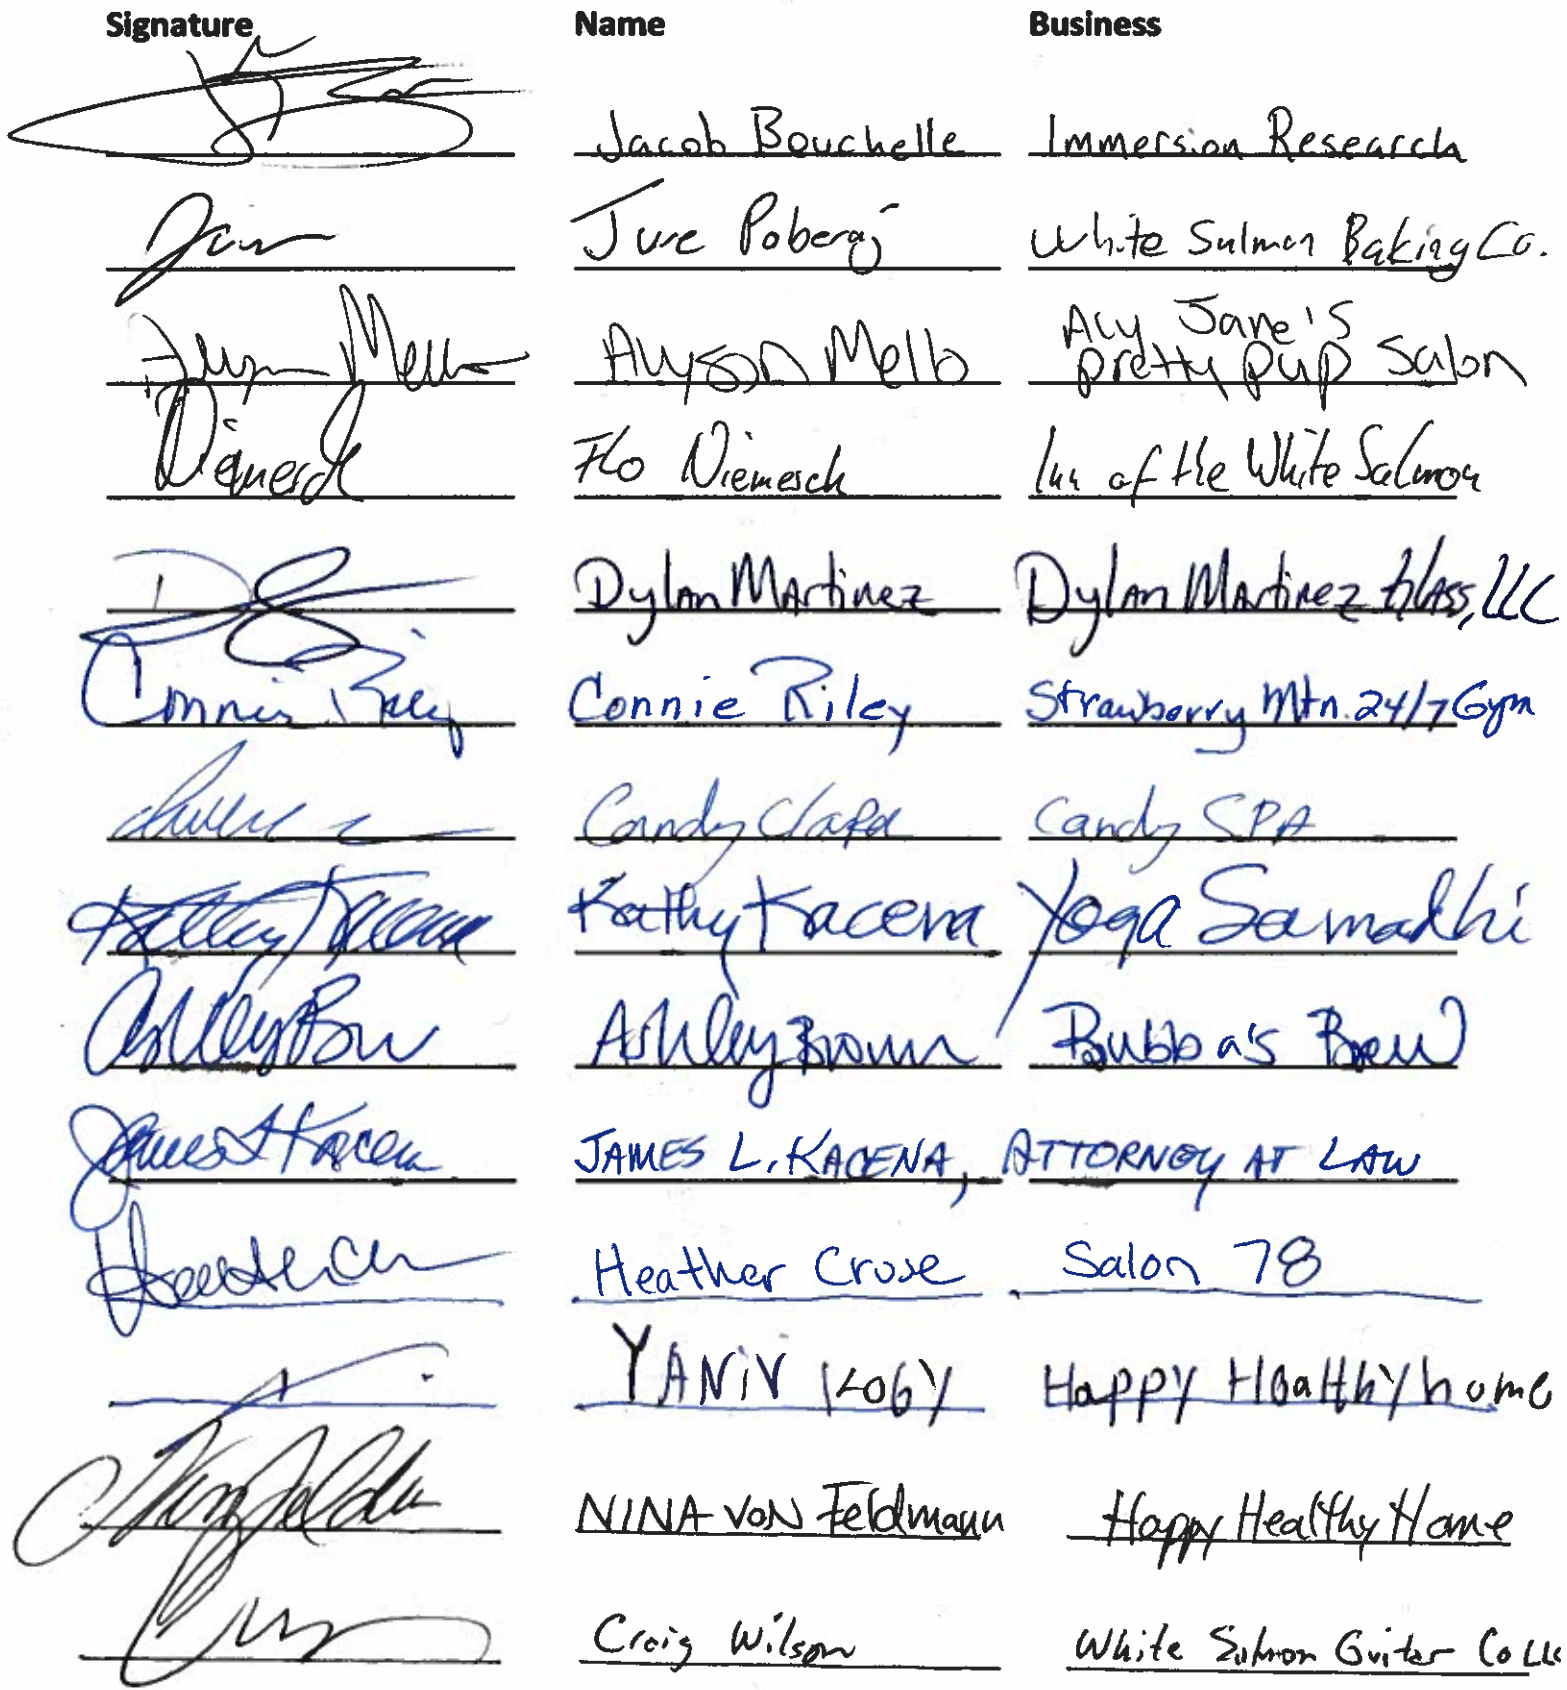 Signature Name Business
Jacob Bouchelle Immersion Research
Jure Poberaj White Salmon Baking Co.
Aly Jane's
Mello Alyson Mello pretty pup Salon
Niemesch Flo Niemesch Inn of the White Salmon
Dylan Martinez Dylan Martinez Glass, LLC
Connie Riley Connie Riley Strawberry Mtn. 24/7 Gym
Candy Candy SPA
Kathy Kacena Kathy Kacena Yoga Samadhi
Ashley Brown Bubba's Brew
James L Kacena JAMES L. KACENA, ATTORNEY AT LAW
Heather Crose Salon 78
YANIV Happy Healthy home
NINA VON Feldmann Happy Healthy Home
Craig Wilson White Salmon Guitar Co LLC